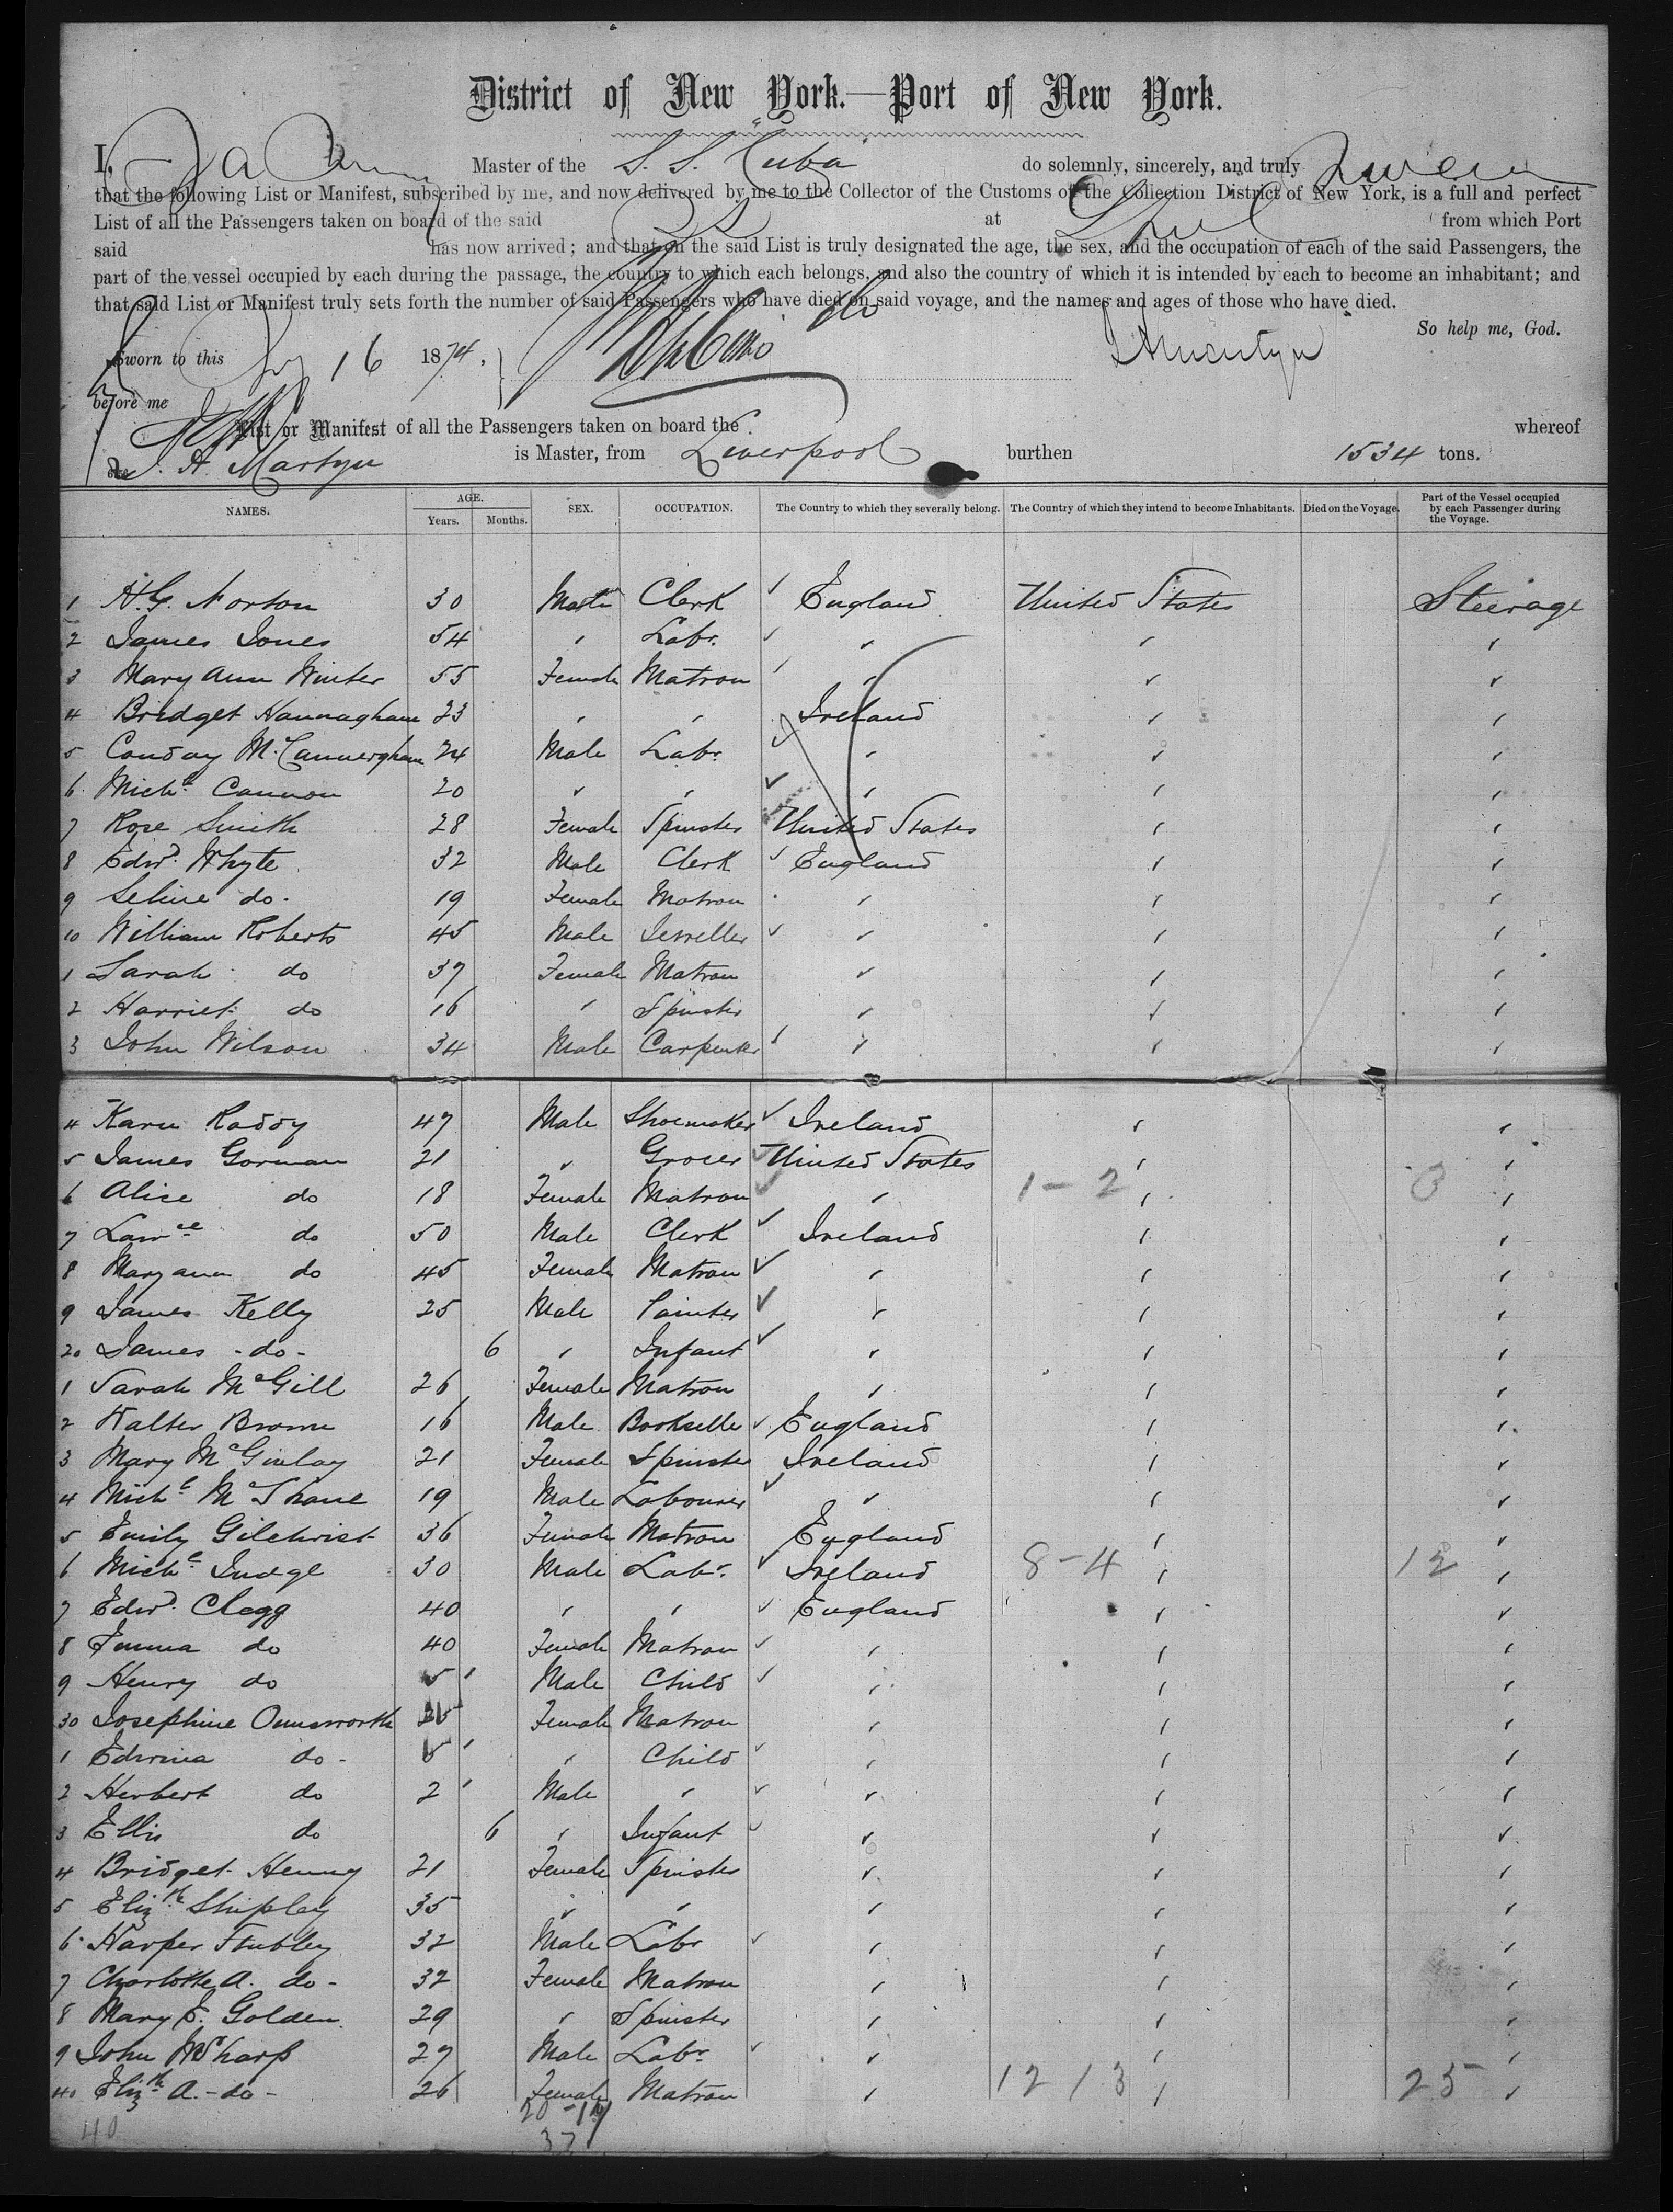 District of New York.—Port of New York.
I, Master of the S. S. Cuba do solemnly, sincerely, and truly Swear
that the following List or Manifest, subscribed by me, and now delivered by me to the Collector of the Customs of the Collection District of New York, is a full and perfect
List of all the Passengers taken on board of the said at from which Port
said has now arrived; and that on the said List is truly designated the age, the sex, and the occupation of each of the said Passengers, the
part of the vessel occupied by each during the passage, the country to which each belongs, and also the country of which it is intended by each to become an inhabitant; and
that said List or Manifest truly sets forth the number of said Passengers who have died on said voyage, and the names and ages of those who have died.
So help me, God.
Sworn to this 16 1874,
before me
List or Manifest of all the Passengers taken on board the whereof
J. A. Martyn is Master, from Liverpool burthen 1534 tons.
NAMES. AGE. SEX. OCCUPATION. The Country to which they severally belong. The Country of which they intend to become Inhabitants. Died on the Voyage. Part of the Vessel occupied by each Passenger during the Voyage.
Years. Months.
1 H.G. Norton 30 Male Clerk England United States Steerage
2 James Jones 54 " Labr. " " "
3 Mary Ann Winter 55 Female Matron " " "
4 Bridget Hannaghan 23 " " Ireland " "
5 Conday 24 Male Labr. " " "
6 Michl. Cannon 20 " " " " "
7 Rose Smith 28 Female Spinster United States " "
8 Edwd. Whyte 32 Male Clerk England " "
9 Seline do. 19 Female Matron " " "
10 William Roberts 45 Male Jeweller " " "
1 Sarah do 37 Female Matron " " "
2 Harriet do 16 " Spinster " " "
3 John Wilson 34 Male Carpenter " " "
4 Karn Raddy 47 Male Shoemaker Ireland " "
5 James Gorman 21 " Grocer United States " "
6 Alice do 18 Female Matron " 1-2 " 3 "
7 Lawce do 50 Male Clerk Ireland " "
8 Maryann do 45 Female Matron " " "
9 James Kelly 25 Male Painter " " "
20 James -do- 6 " Infant " " "
1 Sarah McGill 26 Female Matron " " "
2 Walter Brown 16 Male Bookseller England " "
3 Mary McGinlay 21 Female Spinster Ireland " "
4 Michl. McShane 19 Male Labourer " " "
5 Emily Gilchrist 36 Female Matron England " "
6 Michl. Judge 30 Male Labr. Ireland 8-4 " 12 "
7 Edwd. Clegg 40 " " England " "
8 Emma do 40 Female Matron " " "
9 Henry do 5 Male Child " " "
30 Josephine Ounsworth Female Matron " " "
1 Edwina do - " Child " " "
2 Herbert do 2 Male " " " "
3 Ellis do 6 " Infant " " "
4 Bridget Henny 21 Female Spinster " " "
5 Elizth Shipley 35 " " " " "
6 Harper Stubley 32 Male Labr " " "
7 Charlotte A. do - 32 Female Matron " " "
8 Mary E. Golden 29 " Spinster " " "
9 John W Sharp 27 Male Labr. " " "
40 Elizth A. -do- 26 Female Matron " 12 13 " 25 "
40 20-17
37